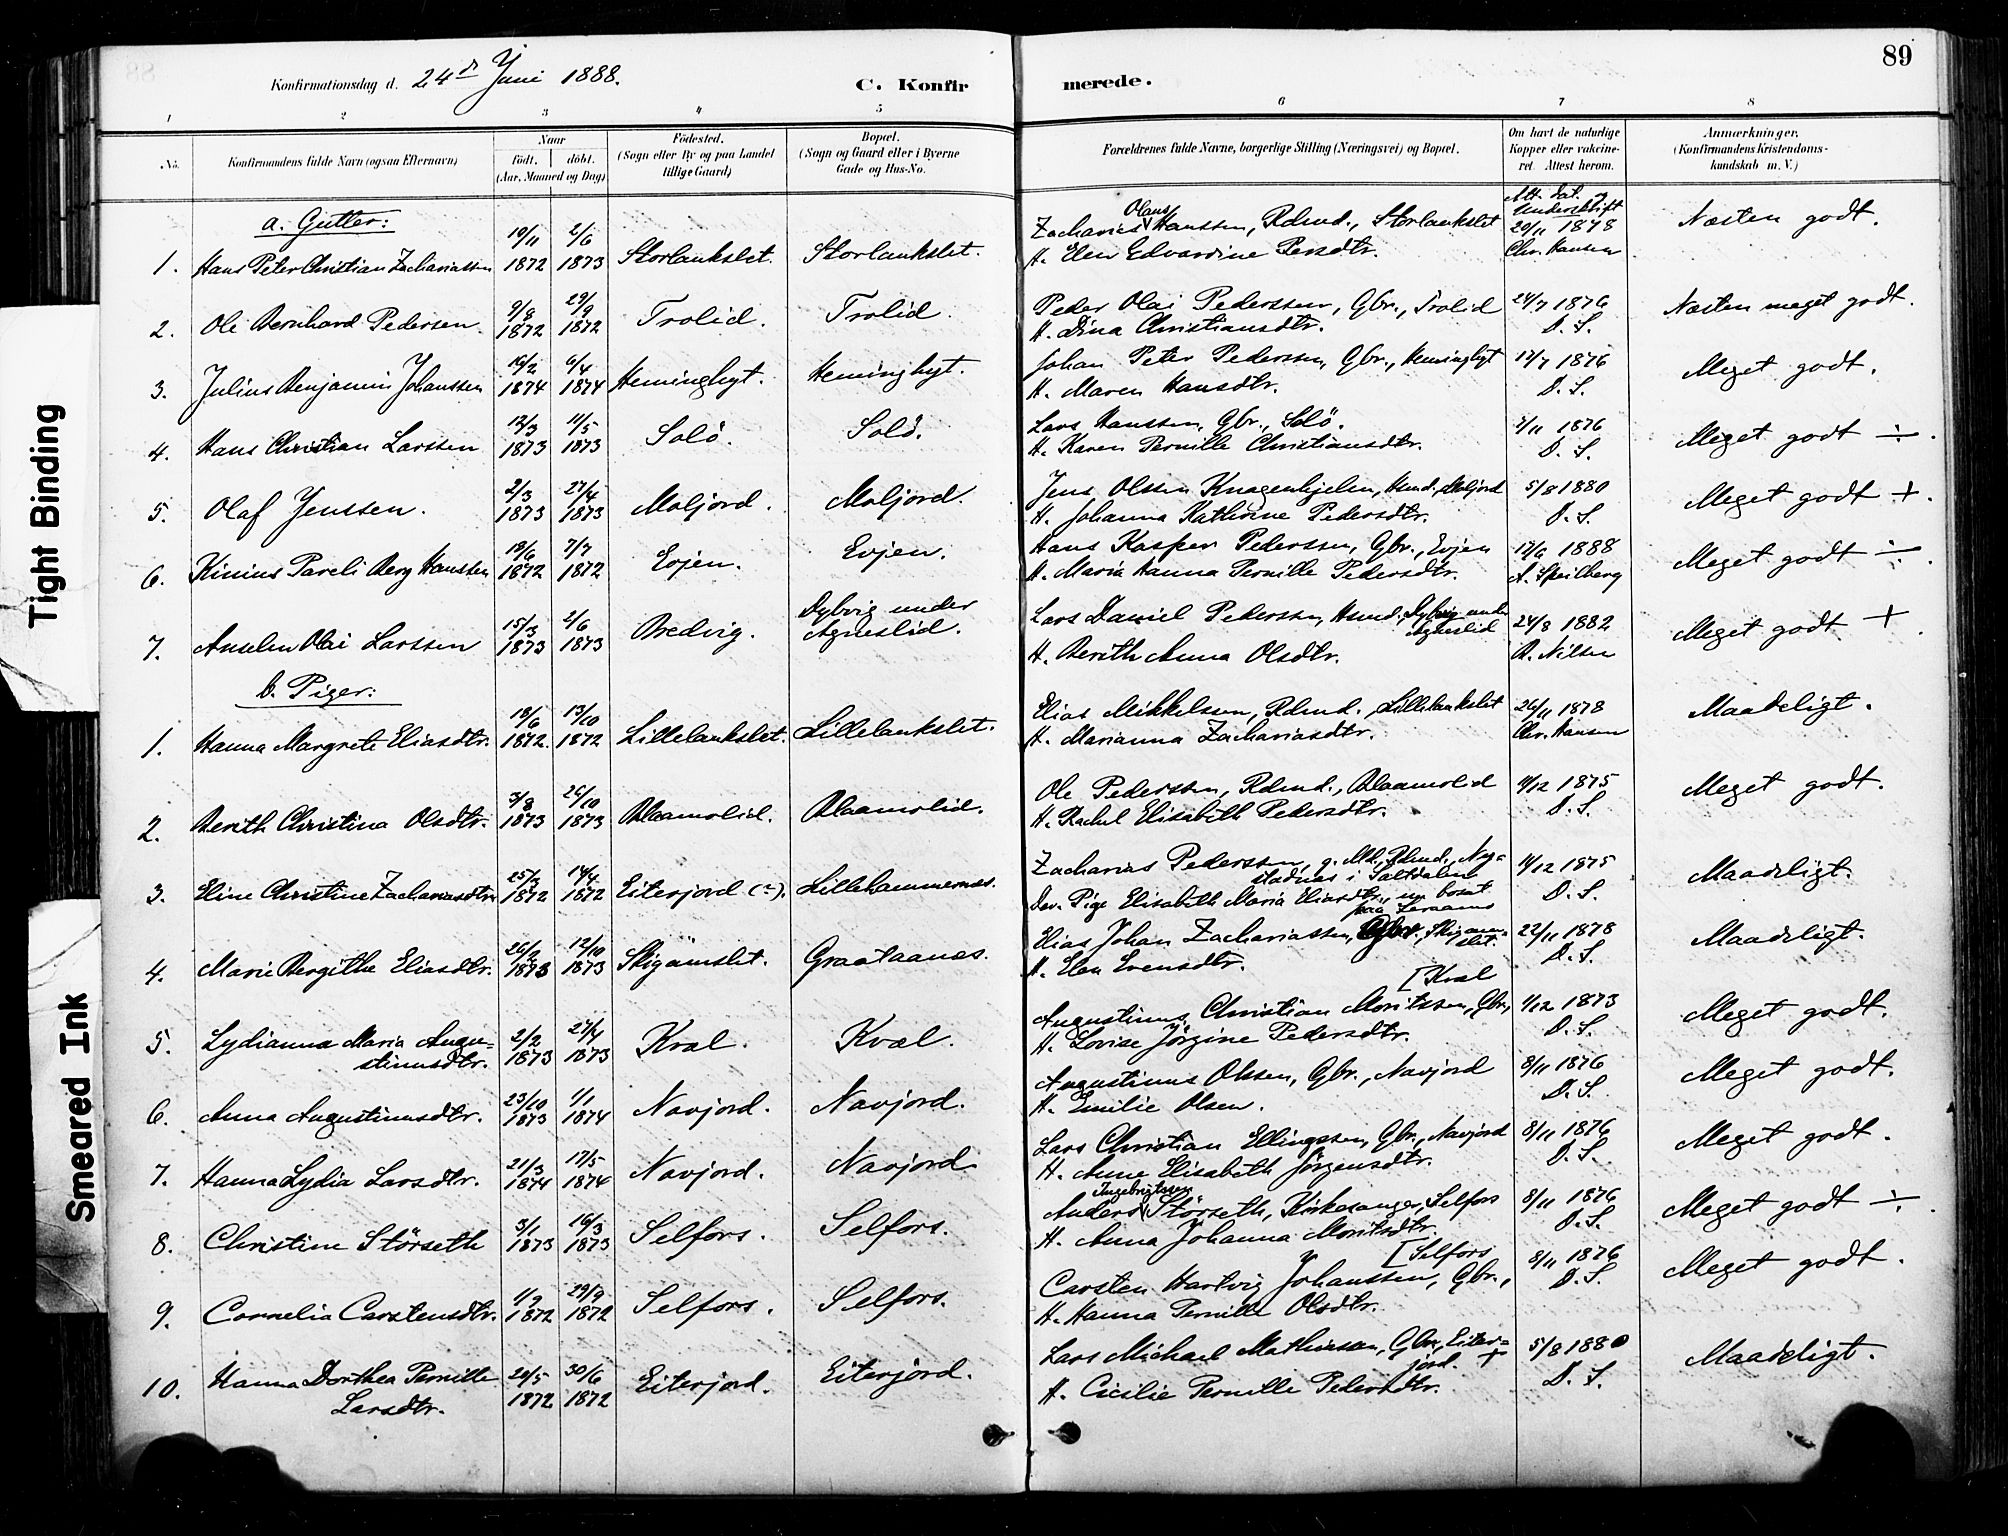 89
Konfirmationsdag d. 24de Juni 1888.
C. Konfirmerede.
1 2 3 4 5 6 7 8
No.
Konfirmandens fulde Navn (ogsaa Efternavn)
Naar
født. døbt.
(Aar, Maaned og Dag)
Fødested.
(Sogn eller By og paa Landet tillige Gaard)
Bopæl.
(Sogn og Gaard eller i Byerne Gade og Hus-No.
Forældrenes fulde Navne, borgerlige Stilling (Næringsvei) og Bopæl.
Om havt de naturlige Kopper eller vakcineret. Attest herom.
Anmærkninger.
(Konfirmandens Kristendomskundskab m. V.)
a. Gutter:
1. Hans Peter Christian Zachariassen 19/11 1872 2/6 1873 Storlankslet. Storlankslet. Zacharias Olaus Hanssen, Rdmd., Storlankslet
H. Elen Edvardine Persdtr. Att. Dat. og Underskrift 29/11 1878 Chr. Hansen Næsten godt.
2. Ole Bernhard Pedersen. 9/8 1872 29/9 1872 Trolid. Trolid. Peder Olai Pederssen, Gbr., Trolid
H. Dina Christiansdtr. 24/7 1876 D. S. Næsten meget godt.
3. Julius Benjamin Johanssen 16/2 1874 6/4 1874 Heminghyt. Heminghyt. Johan Peter Pederssen, Gbr., Heminghyt
H. Maren Hansdtr. 12/7 1876 D. S. Meget godt.
4. Hans Christian Larssen 12/3 1873 11/5 1873 Solö. Solö. Lars Hanssen, Gbr., Solö.
H. Karen Pernille Christiansdtr. 1/11 1876 D. S. Meget godt ÷.
5. Olaf Jenssen. 2/3 1873 27/4 1873 Moljord. Moljord. Jens Olssen Knagenhjelm, Hmd., Moljord
H. Johanna Kathrine Pedersdtr. 5/8 1880 D. S. Meget godt +.
6. Kinius Pareli Berg Hanssen 19/6 1872 7/7 1872 Evjen. Evjen. Hans Kasper Pederssen, Gbr., Evjen
H. Maria Hanna Pernille Pedersdtr. 17/6 1888 A. Speilberg Meget godt ÷.
7. Anselm Olai Larssen 15/3 1873 2/6 1873 Bredvig. Dybvig under Agneslid. Lars Daniel Pederssen, Hsmd. Dybvig under Agneslid
H. Berith Anna Olsdtr. 24/8 1882 B. Nilsen Meget godt +.
b. Piger:
1. Hanna Margrete Eliasdtr. 18/6 1872. 13/10 1872 Lillelankslet. Lillelankslet. Elias Mikkelssen, Rdmd., Lillelankslet
H. Marianna Zachariasdtr. 26/11 1878 Chr. Hansen Maadeligt.
2. Berith Christina Olsdtr. 3/8 1873 26/10 1873 Blaamolid. Blaamolid. Ole Pederssen, Rdmd., Blaamolid
H. Rachel Elisabeth Pedersdtr. 4/12 1875 D. S. Meget godt.
3. Eline Christine Zachariasdtr. 1872 14/4 1872 Eiterjord (÷). Lillehammernes. Zacharias Pederssen, g. Md., Rdmd., Nystadnes i Saltdalen
Dav. Pige Elisabeth Maria Eliasdtr., nu bosat paa 4/12 1875 D. S. Maadeligt.
4. Marie Bergithe Eliasdtr. 1873 12/10 1873 Skigamslet. Graataanes. Elias Johan Zachariassen, Gbr., Skigamslet.
H. Elen Evensdtr. 22/11 1878 D. S. Maadeligt.
5. Lydianna Maria Augustinusdtr. 2/2 1873 27/4 1873 Kval. Kvæl. Augustinus Christian Moritssen, Gbr., [Kval
H. Lovise Jörgine Pedersdtr. 1/12 1873 D. S. Meget godt.
6. Anna Augustinusdtr. 23/10 1873 1/1 1874 Navjord. Navjord. Augustinus Olssen, Gbr., Navjord
H. Emilie Olsen. 8/11 1876 D. S. Meget godt.
7. Hanna Lydia Larsdtr. 21/3 1874 17/5 1874 Navjord. Navjord Lars Christian Ellingssen, Gbr., Navjord
H. Anne Elisabeth Jörgensdtr. 8/11 1876 D. S. Meget godt.
8. Christine Störseth 3/1 1873 16/3 1873 Selfors. Selfors. Anders Ingebrigtssen Störseth, Kirkesanger, Selfors
H. Anna Johanna Moritsdtr. 8/11 1876 D. S. Meget godt ÷.
9. Cornelia Carstensdtr. 1872 29/9 1872 Selfors. Selfors. Carsten Hartvig Johanssen, Gbr., [Selfors
H. Hanna Pernille Olsdtr. 8/11 1876 D. S. Meget godt.
10. Hanna Dorthea Pernille Larsdtr. 24/5 1872 30/6 1872 Eiterjord. Eiterjord. Lars Michael Mathiassen, Gbr., Eiterjord. +
H. Cicilie Pernille Pedersdtr. 5/8 1880 D. S. Maadeligt.
Tight Binding
Smeared Ink